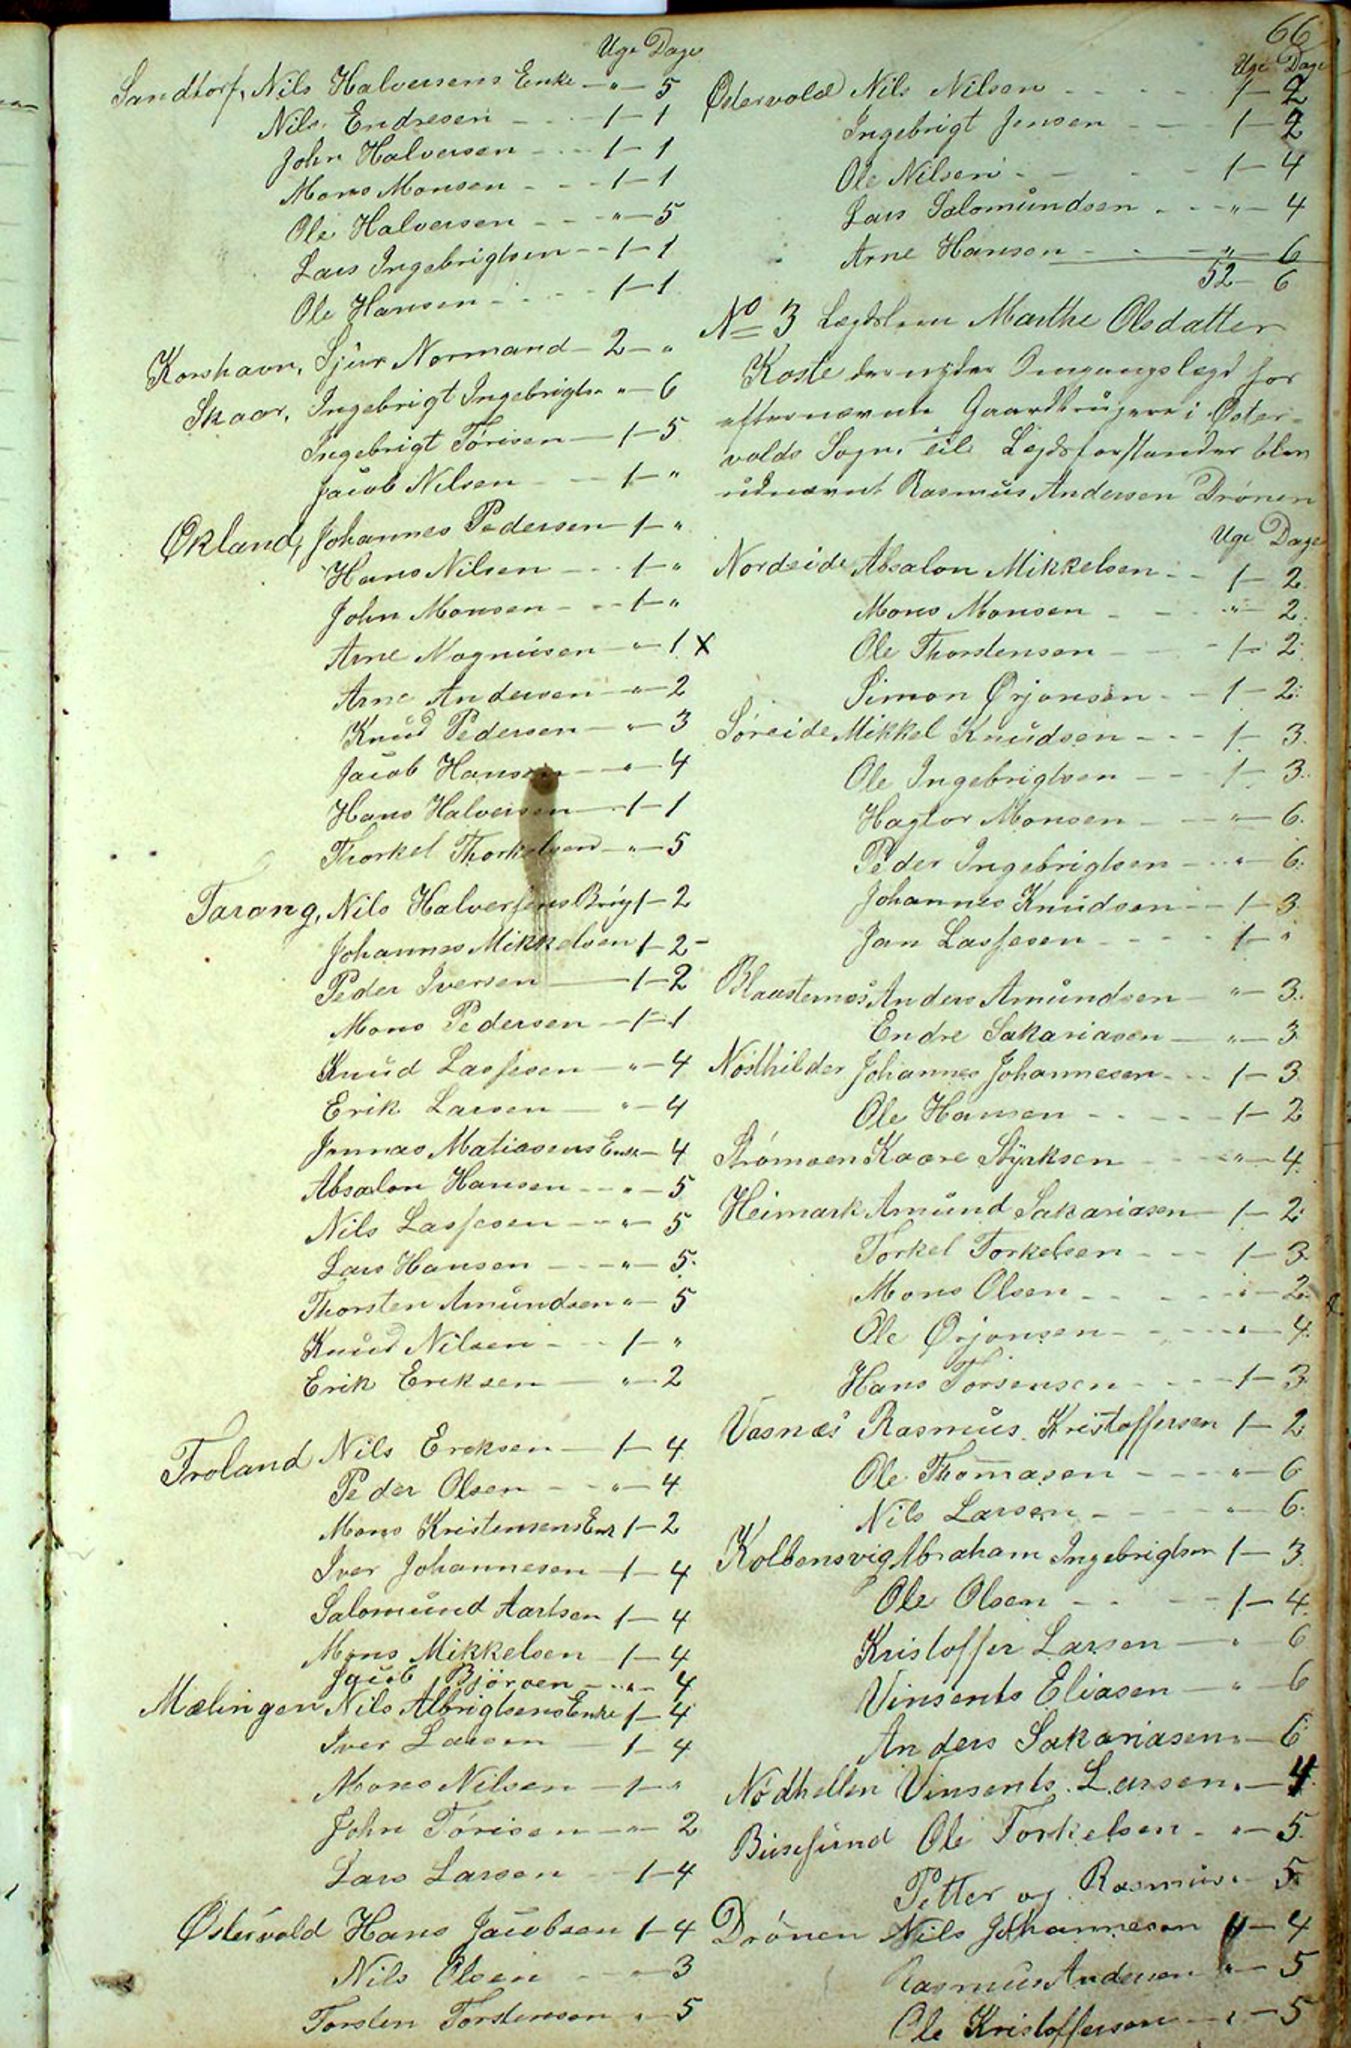 66
Uge Dage
Sandtorf, Nils Halversens Enke — " — 5
Nils Endresen — 1 — 1
John Halversen — 1 — 1
Mons Monsen — 1 — 1
Ole Halversen — " — 5
Lars Ingebrigtsen — 1 — 1
Ole Hansen — 1 — 1
Korshavn, Sjur Normand — 2 — "
Skaar, Ingebrigt Ingebrigts. " — 6
Ingebrigt Törisen — 1 — 5
Jacob Nilsen — 1 — "
Økland, Johannes Pedersen — 1 — "
Hans Nilsen — 1 — "
John Monsen — 1 — "
Arne Magnusen — " — 1 X
Arne Andersen — " — 2
Knud Pedersen — " — 3
Jacob Hansen — " — 4
Hans Halversen — 1 — 1
Thorkel Thorkelsen — " — 5
Tarang, Nils Halversens 1 — 2
Johannes Mikkelsen 1 — 2 -
Peder Iversen — 1 — 2
Mons Pedersen — 1 — 1
Knud Lassesen — " — 4
Erik Larsen — " — 4
Jonnas Matiasens Enke — 4
Absalon Hansen — " — 5
Nils Lassesen — " — 5
Lars Hansen — " — 5
Thorsten Amundsen " — 5
Knud Nilsen — 1 — "
Erik Eriksen — " — 2
Troland Nils Ereksen — 1 — 4
Peder Olsen — " — 4
Mons Kristensens Enk 1 — 2
Iver Johannesen — 1 — 4
Salomund Aartsen 1 — 4
Mons Mikkelsen — 1 — 4
Jacob Björsen — " — 4
Mælingen Nils Albrigtsens Enke 1 — 4
Iver Larsen — 1 — 4
Mons Nilsen — 1 — "
John Törisen — " — 2
Lars Larsen — 1 — 4
Østervold Hans Jacobsen 1 — 4
Nils Olsen — " — 3
Torsten Torstensen " — 5
Uge Dage
Østervold Nils Nilsen — 1 — 2
Ingebrigt Jensen — 1 — 2
Ole Nilsen — 1 — 4
Lars Salomundsen — " — 4
Arne Hansen — " — 6
52 — 6
No 3 Lægdslem Marthe Olsdatter
Koste der nyder Omgangslægd hos
efternævnte Gaardbrugere i Øster-
volds Sogn. til Legdsforstander blev
udnævnt Rasmus Andersen Drönen
Uge Dage
Nordeide Absalon Mikkelsen — 1 — 2
Mons Monsen — " — 2
Ole Thorstensen — 1 — 2
Simon Ørjansen — 1 — 2
Søreide Mikkel Knudsen — 1 — 3
Ole Ingebrigtsen — 1 — 3
Hagtor Monsen — " — 6
Peder Ingebrigtsen — " — 6
Johannes Knudsen — 1 — 3
Jan Lassesen — 1 — "
Blaastenes Anders Amundsen — " — 3
Endre Sakariasen — " — 3
Nösthilder Johannes Johannesen — 1 — 3
Ole Hansen — 1 — 2
Strømsen Kaare Styrksen — " — 4
Heimark Amund Sakariasen — 1 — 2
Torkel Torkelsen — 1 — 3
Mons Olsen — " — 2
Ole Ørjansen — " — 4
Hans — 1 — 3
Vasnæs Rasmus Kristoffersen 1 — 2
Ole Thomasen — " — 6
Nils Larsen — " — 6
Kolbensvig Abraham Ingebrigtsen 1 — 3
Ole Olsen — 1 — 4
Kristoffer Larsen — " — 6
Vinsents Eliasen — " — 6
Anders Sakariasen " — 6
Nödhellen Vinsents Larsen " — 4
Buesund Ole Torkelsen — " — 5
Petter og Rasmus " — 5
Drönen Nils Johannesen " — 4
Rasmus Andersen " — 5
Ole Kristoffersen — " — 5